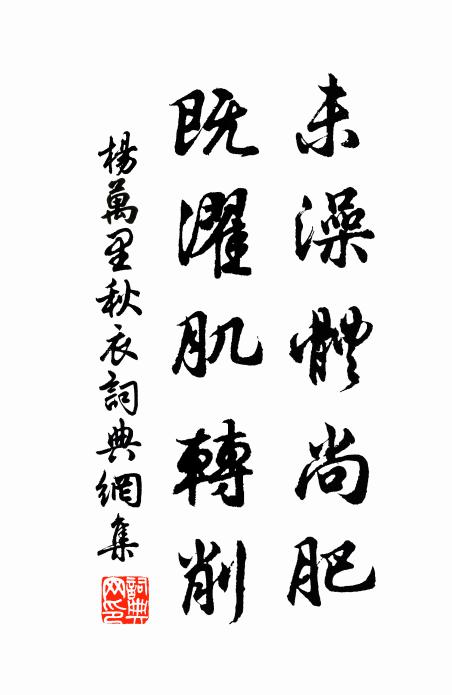 未澡體尚肥
既濯肌轉削
楊萬里秋衣詞典網集
詞典网印